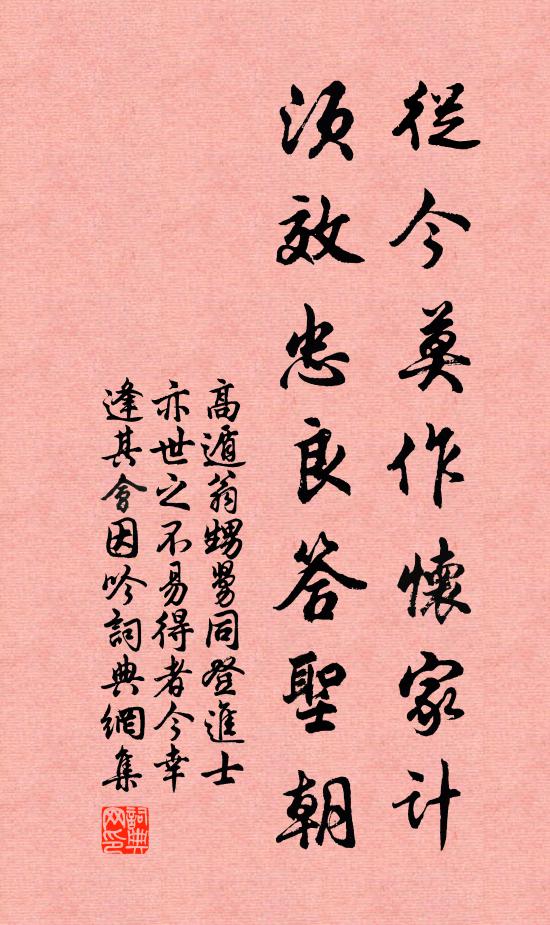 從今莫作懷家計
須效忠良答聖朝
高遁翁甥舅同登進士
亦世之不易得者今幸
逢其會因吟詞典網集
詞典网印